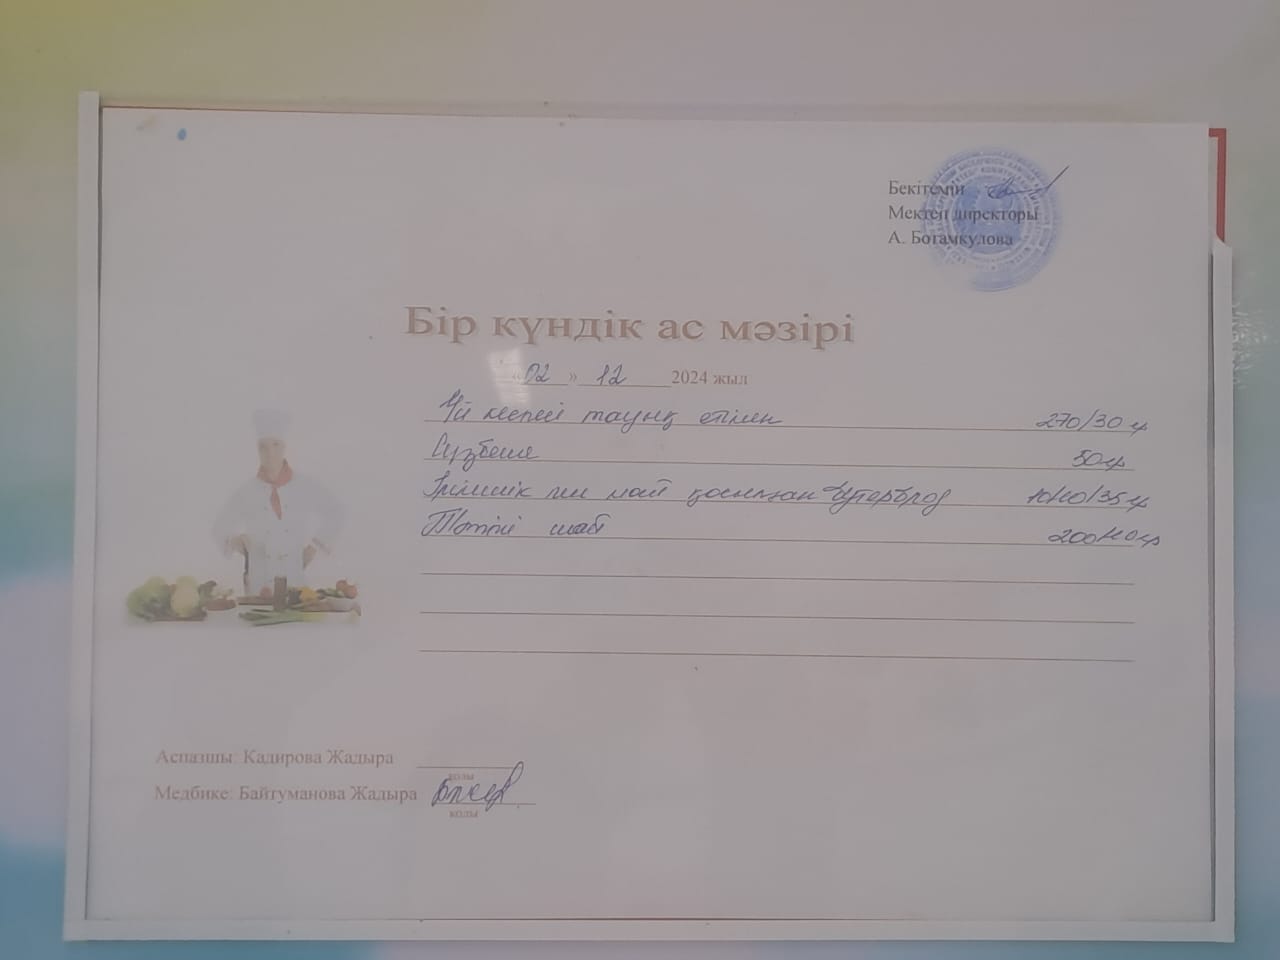 Бекітемін
Мектеп директоры
А. Ботамкулова
Бір күндік ас мәзірі
«02» 12 2024 жыл
Үй кеспесі тауық етімен 270/30 гр
Сүзбеше 50 гр
Ірімшік пен май қосылған бутерброд 10/10/35 гр
Тәтті шай 200/10 гр
Аспазшы: Кадирова Жадыра
қолы
Медбике: Байтуманова Жадыра
қолы